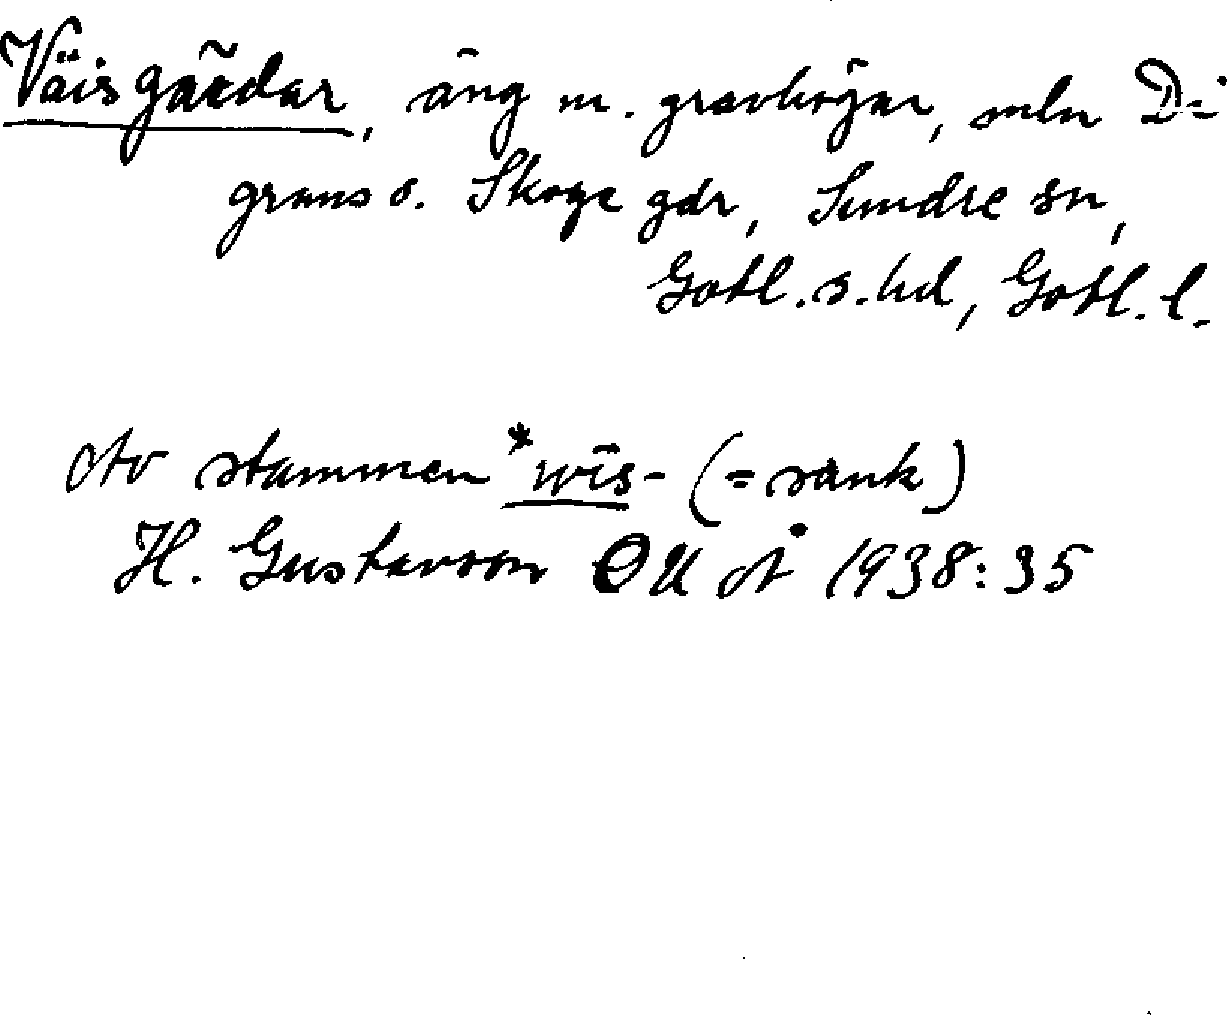 Väisgãrdar, äng m. gravhöjar, mln Di-
grans o. Skoge gdr, Sundre sn,
Gotl. s. hd, Gotl. l.
Av stammen *wīs- (= sank)
H. Gustavson OUÅ 1938:35